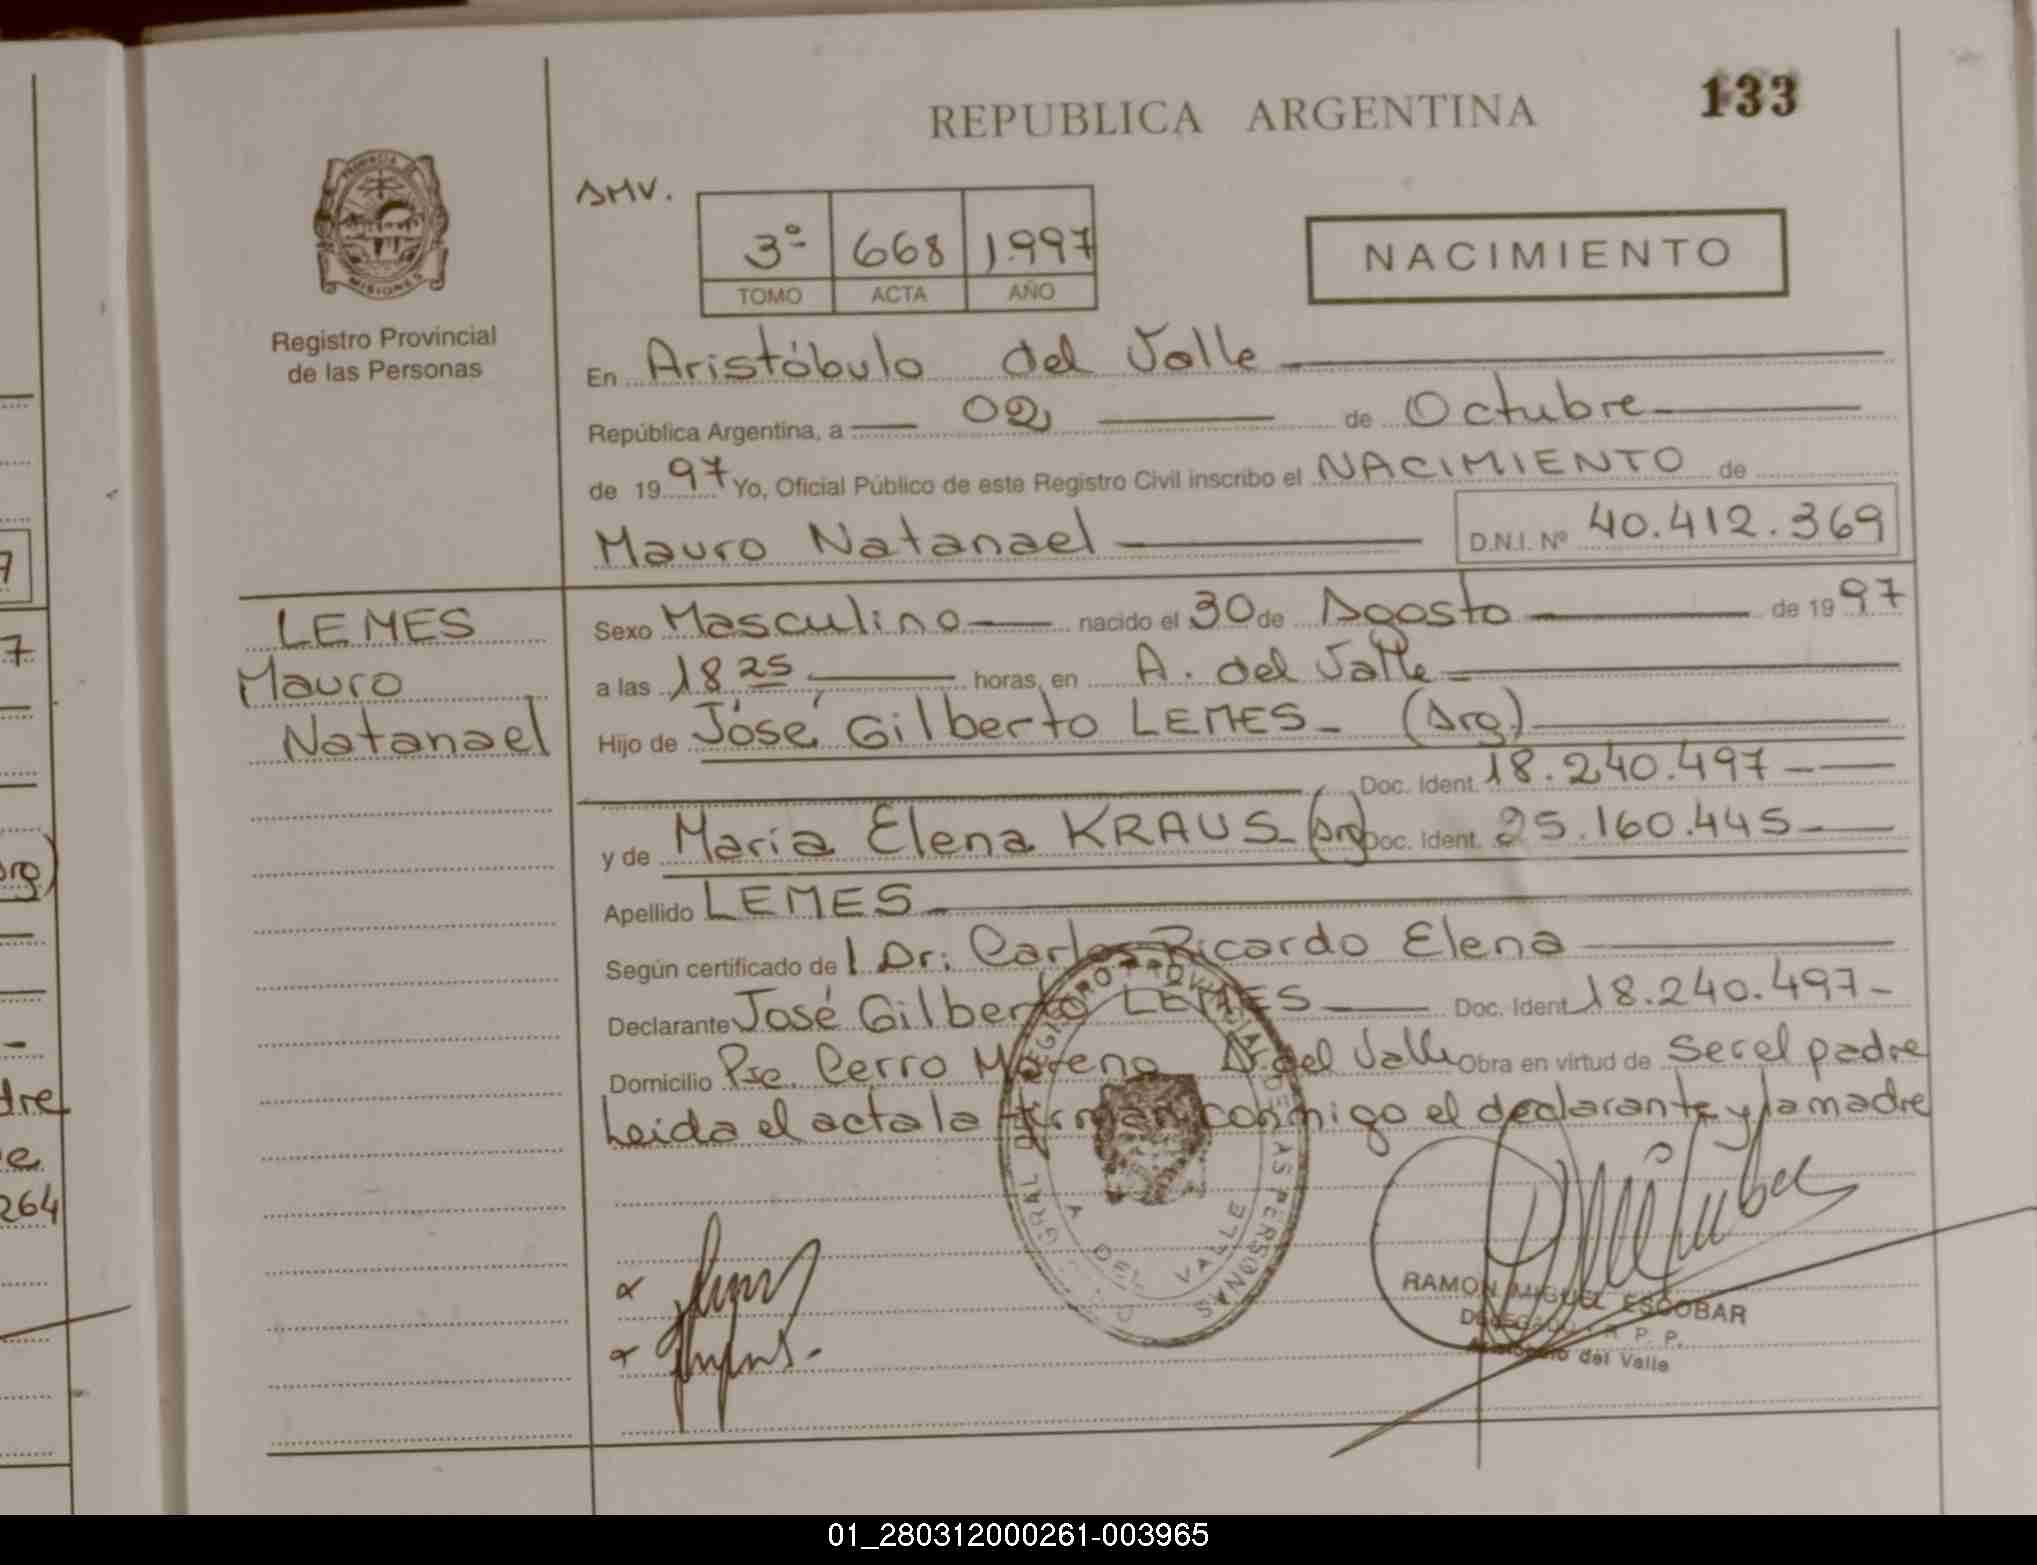 REPUBLICA ARGENTINA
133
PROVINCIA DE
MISIONES
Registro Provincial
de las Personas
AMV.
3º 668 1.997
TOMO ACTA AÑO
NACIMIENTO
En Aristóbulo del Valle
República Argentina, a 02 de Octubre
de 1997 Yo, Oficial Público de este Registro Civil inscribo el NACIMIENTO de
Mauro Natanael D.N.I. Nº 40.412.369
LEMES
Mauro
Natanael
Sexo Masculino nacido el 30 de Agosto de 1997
a las 18 25 horas, en A. del Valle
Hijo de José Gilberto LEMES - (Arg)
Doc. Ident. 18.240.497
y de María Elena KRAUS (Arg) Doc. Ident. 25.160.445
Apellido LEMES
Según certificado de l Dr: Carlos Ricardo Elena
Declarante José Gilberto LEMES Doc. Ident. 18.240.497-
Domicilio Pje. Cerro Moreno A. del Valle Obra en virtud de ser el padre
Leida el acta la firman conmigo el declarante y la madre
REGISTRO PROVINCIAL DE LAS PERSONAS
A. DEL VALLE
RAMON MIGUEL ESCOBAR
DELEGADO R. P. P.
Aristobulo del Valle
7
7
arg)
dre
e
264
01_280312000261-003965